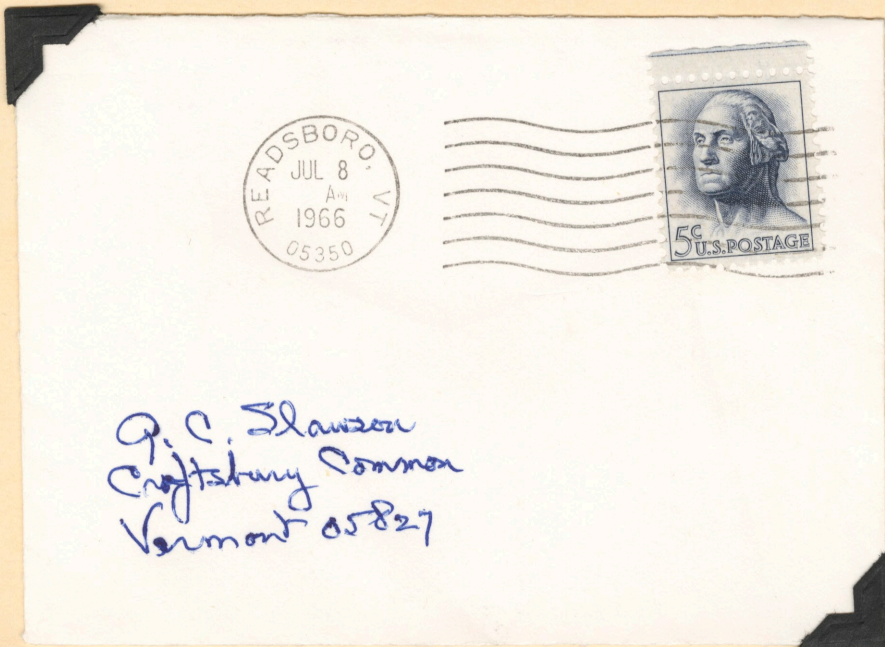 READSBORO, VT
JUL 8
AM
1966
05350
5c
U.S. POSTAGE
A. C. Slawson
Craftsbury Common
Vermont 05827